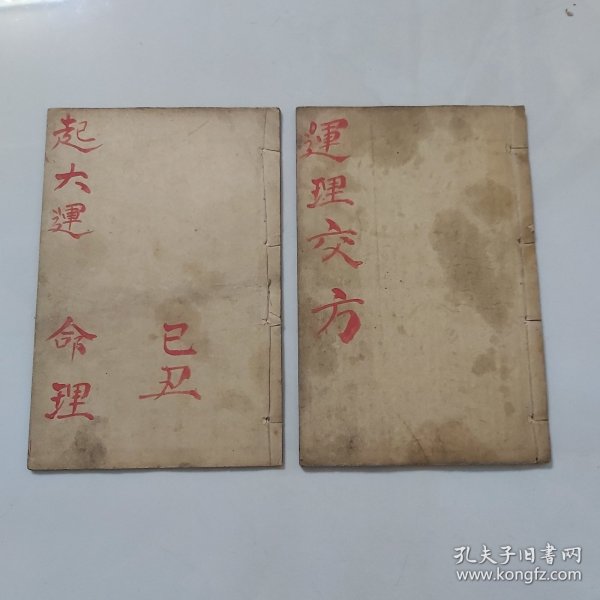 起大運 命理
己丑
運理交方
孔夫子旧書网
www.kongfz.com